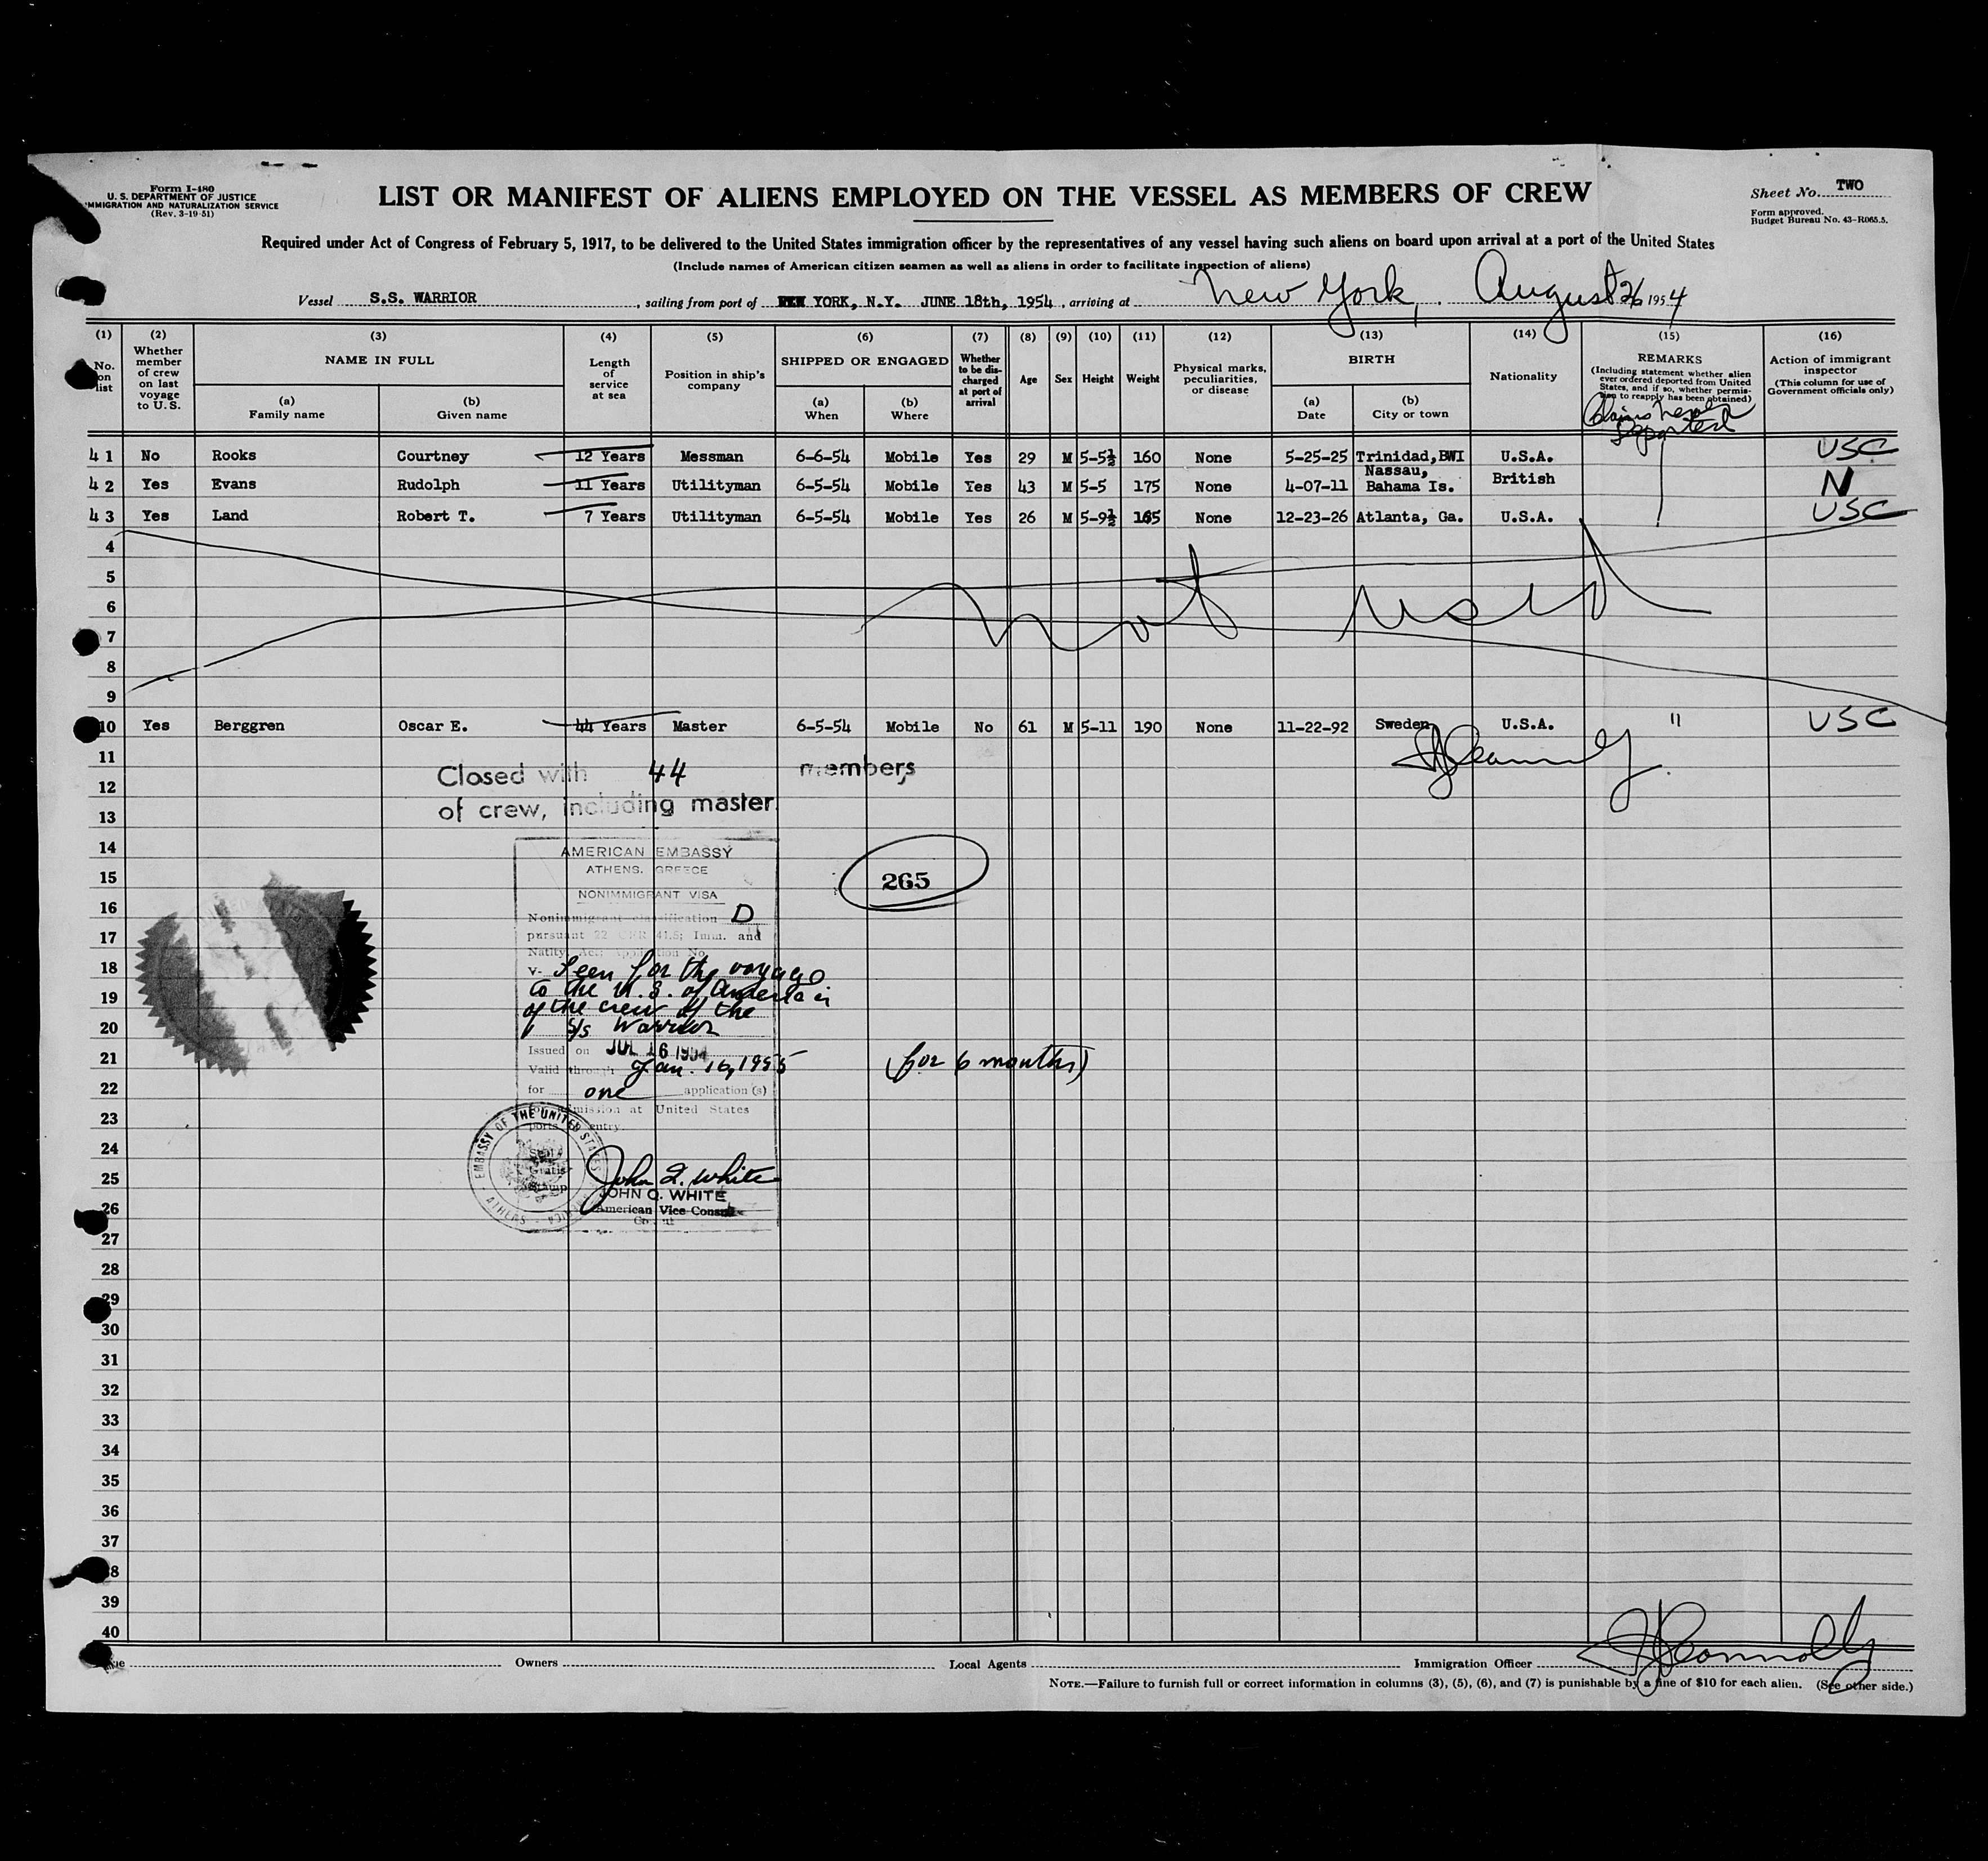 Form I-480
U. S. DEPARTMENT OF JUSTICE
IMMIGRATION AND NATURALIZATION SERVICE
(Rev. 3-19-51)
LIST OR MANIFEST OF ALIENS EMPLOYED ON THE VESSEL AS MEMBERS OF CREW
Sheet No. TWO
Form approved.
Budget Bureau No. 43-R065.5.
Required under Act of Congress of February 5, 1917, to be delivered to the United States immigration officer by the representatives of any vessel having such aliens on board upon arrival at a port of the United States
(Include names of American citizen seamen as well as aliens in order to facilitate inspection of aliens)
Vessel S.S. WARRIOR, sailing from port of NEW YORK, N.Y. JUNE 18th, 1954, arriving at New York, August 26 1954
(1) (2) (3) (4) (5) (6) (7) (8) (9) (10) (11) (12) (13) (14) (15) (16)
No. on list
Whether member of crew on last voyage to U.S.
NAME IN FULL
(a) Family name
(b) Given name
Length of service at sea
Position in ship's company
SHIPPED OR ENGAGED
(a) When
(b) Where
Whether to be discharged at port of arrival
Age
Sex
Height
Weight
Physical marks, peculiarities, or disease
BIRTH
(a) Date
(b) City or town
Nationality
REMARKS
(Including statement whether alien ever ordered deported from United States, and if so, whether permission to reapply has been obtained)
Claims never Deported
Action of immigrant inspector
(This column for use of Government officials only)
41 No Rooks Courtney 12 Years Messman 6-6-54 Mobile Yes 29 M 5-5½ 160 None 5-25-25 Trinidad, BWI U.S.A. USC
42 Yes Evans Rudolph 11 Years Utilityman 6-5-54 Mobile Yes 43 M 5-5 175 None 4-07-11 Nassau, Bahama Is. British N
43 Yes Land Robert T. 7 Years Utilityman 6-5-54 Mobile Yes 26 M 5-9½ 165 None 12-23-26 Atlanta, Ga. U.S.A. USC
4
5
6 not used
7
8
9
10 Yes Berggren Oscar E. 44 Years Master 6-5-54 Mobile No 61 M 5-11 190 None 11-22-92 Sweden U.S.A. " USC
11
12
13
14
15
16
17
18
19
20
21
22
23
24
25
26
27
28
29
30
31
32
33
34
35
36
37
38
39
40
Closed with 44 members
of crew, including master
265
AMERICAN EMBASSY
ATHENS, GREECE
NONIMMIGRANT VISA
Nonimmigrant classification D
pursuant 22 CFR 41.5; Imm. and
Natlty. Act; Application No.
V- Seen for the voyage
to the U.S. of America
of the crew of the
S/s Warrior
Issued on JUL 16 1954
Valid through Jan. 16, 1955 (for 6 months)
for one application(s)
admission at United States
ports entry.
EMBASSY OF THE UNITED STATES
ATHENS
Gratis
Stamp
John Q. White
JOHN Q. WHITE
American Vice Consul
Owners
Local Agents
Immigration Officer
NOTE.—Failure to furnish full or correct information in columns (3), (5), (6), and (7) is punishable by a fine of $10 for each alien. (See other side.)